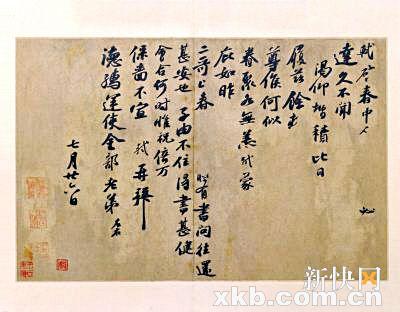 軾啓春中人
達久不聞
渴仰增積比日
履茲餘熱
尊候何似
眷聚各無恙軾蒙
庇如昨
二哥上春 有書問往還
甚安也子由不住得書甚健
會合何時惟祝倍万
保嗇不宣 軾再拜
德孺運使金部老弟
七月廿六日
新快网
xkb.com.cn